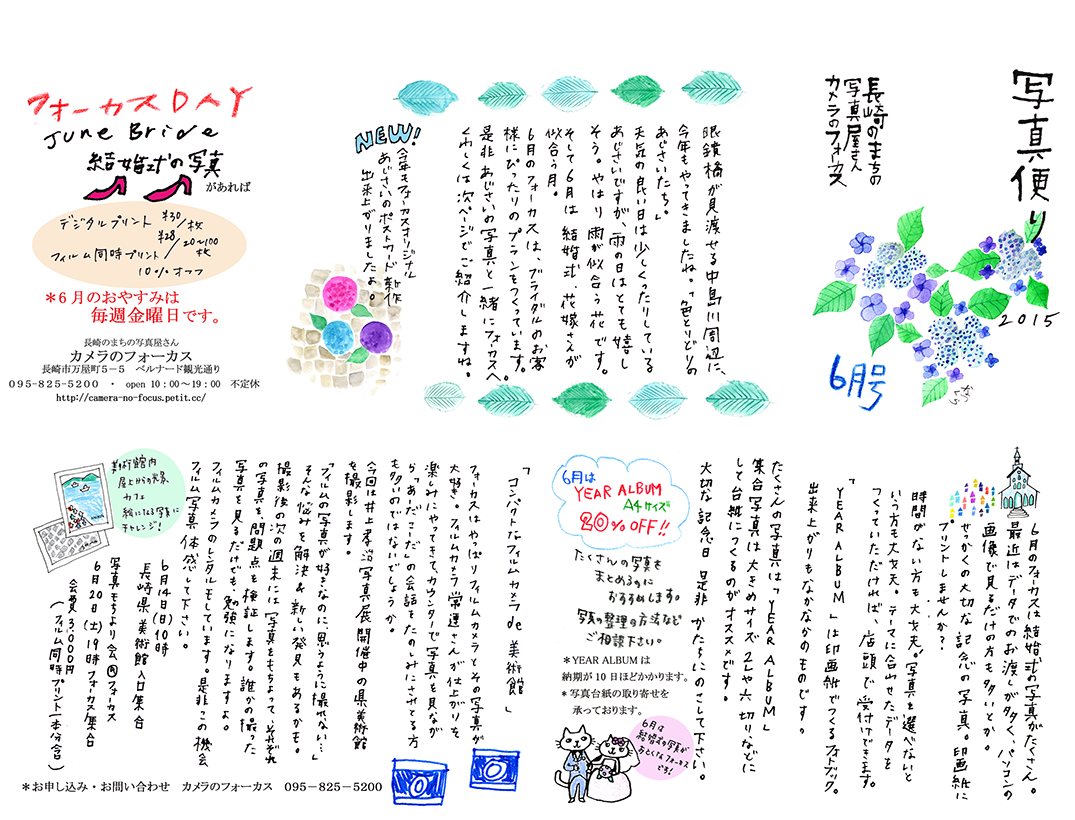 写真便り
2015
6月号
長崎のまちの
写真屋さん
カメラのフォーカス
眼鏡橋が見渡せる中島川周辺に、
今年もやってきましたね。「色とりどりの
あじさいたち。」
天気の良い日は少しくったりしている
あじさいですが、雨の日はとても嬉し
そう。やはり雨が似合う花です。
そして6月は結婚式、花嫁さんが
似合う月。
6月のフォーカスは、ブライダルのお客
様にぴったりのプランをつくっています。
是非あじさいの写真と一緒にフォーカスへ。
くわしくは次ページでご紹介しますね。
NEW!
今年もフォーカスオリジナル
あじさいのポストカード新作
出来上がりましたよ。
フォーカスDAY
June Bride
結婚式の写真
があれば
デジタルプリント ¥30/枚
¥28/20~100枚
フィルム同時プリント
10%オフ
*6月のおやすみは
毎週金曜日です。
長崎のまちの写真屋さん
カメラのフォーカス
長崎市万屋町5-5 ベルナード観光通り
095-825-5200 ・ open 10:00~19:00 不定休
http://camera-no-focus.petit.cc/
6月のフォーカスは結婚式の写真がたくさん。
最近はデータでのお渡しが多く、パソコンの
画像で見るだけの方も多いとか。
せっかくの大切な記念の写真。印画紙に
プリントしませんか?
時間がない方も大丈夫。写真を選べないと
いう方も大丈夫。テーマに合わせたデータを
つくっていただければ、店頭で受付けできます。
「YEAR ALBUM」は印画紙でつくるフォトブック。
出来上がりもなかなかのものです。
たくさんの写真は「YEAR ALBUM」
集合写真は大きめサイズ2Lや六切りなどに
して台紙につくるのがオススメです。
大切な記念日 是非かたちにのこして下さい。
6月は
YEAR ALBUM
A4サイズ
20%OFF!!
たくさんの写真を
まとめるのに
おすすめします。
写真の整理の方法など
ご相談下さい。
*YEAR ALBUMは
納期が10日ほどかかります。
*写真台紙の取り寄せを
承っております。
6月は
結婚式の写真が
おとくなフォーカス
です!
「コンパクトなフィルムカメラde美術館」
フォーカスはやっぱりフィルムカメラとその写真が
大好き。フィルムカメラ常連さんが仕上がりを
楽しみにやってきて、カウンターで写真を見なが
ら「あーだこーだ」の会話をたのしみにされてる方
も多いのではないでしょうか。
今回は井上孝治写真展開催中の県美術館
を撮影します。
「フィルムの写真が好きなのに、思うように撮れない…」
そんな悩みを解決&新しい発見もあるかも。
撮影後の次の週末には写真をもちよって、それぞれ
の写真を、問題点を検証します。誰かの撮った
写真を見るだけでも勉強になりますよ。
フィルムカメラのレンタルもしています。是非この機会、
フィルム写真体感して下さい。
6月14日(日)10時
長崎県美術館入口集合
写真もちより会@フォーカス
6月20日(土)19時フォーカス集合
会費3,000円
(フィルム同時プリント1本分含)
美術館内
屋上からの光景、
カフェ
絵になる写真に
チャレンジ!
*お申し込み・お問い合わせ カメラのフォーカス 095-825-5200